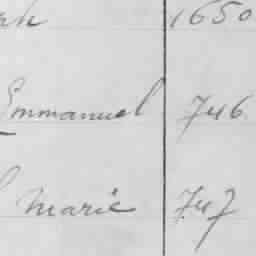 1650
Emmanuel 746
Marie 747